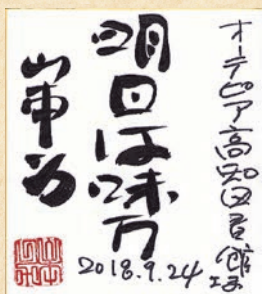 オーテピア高知図書館さま
明日は味方
山本一力
2018.9.24